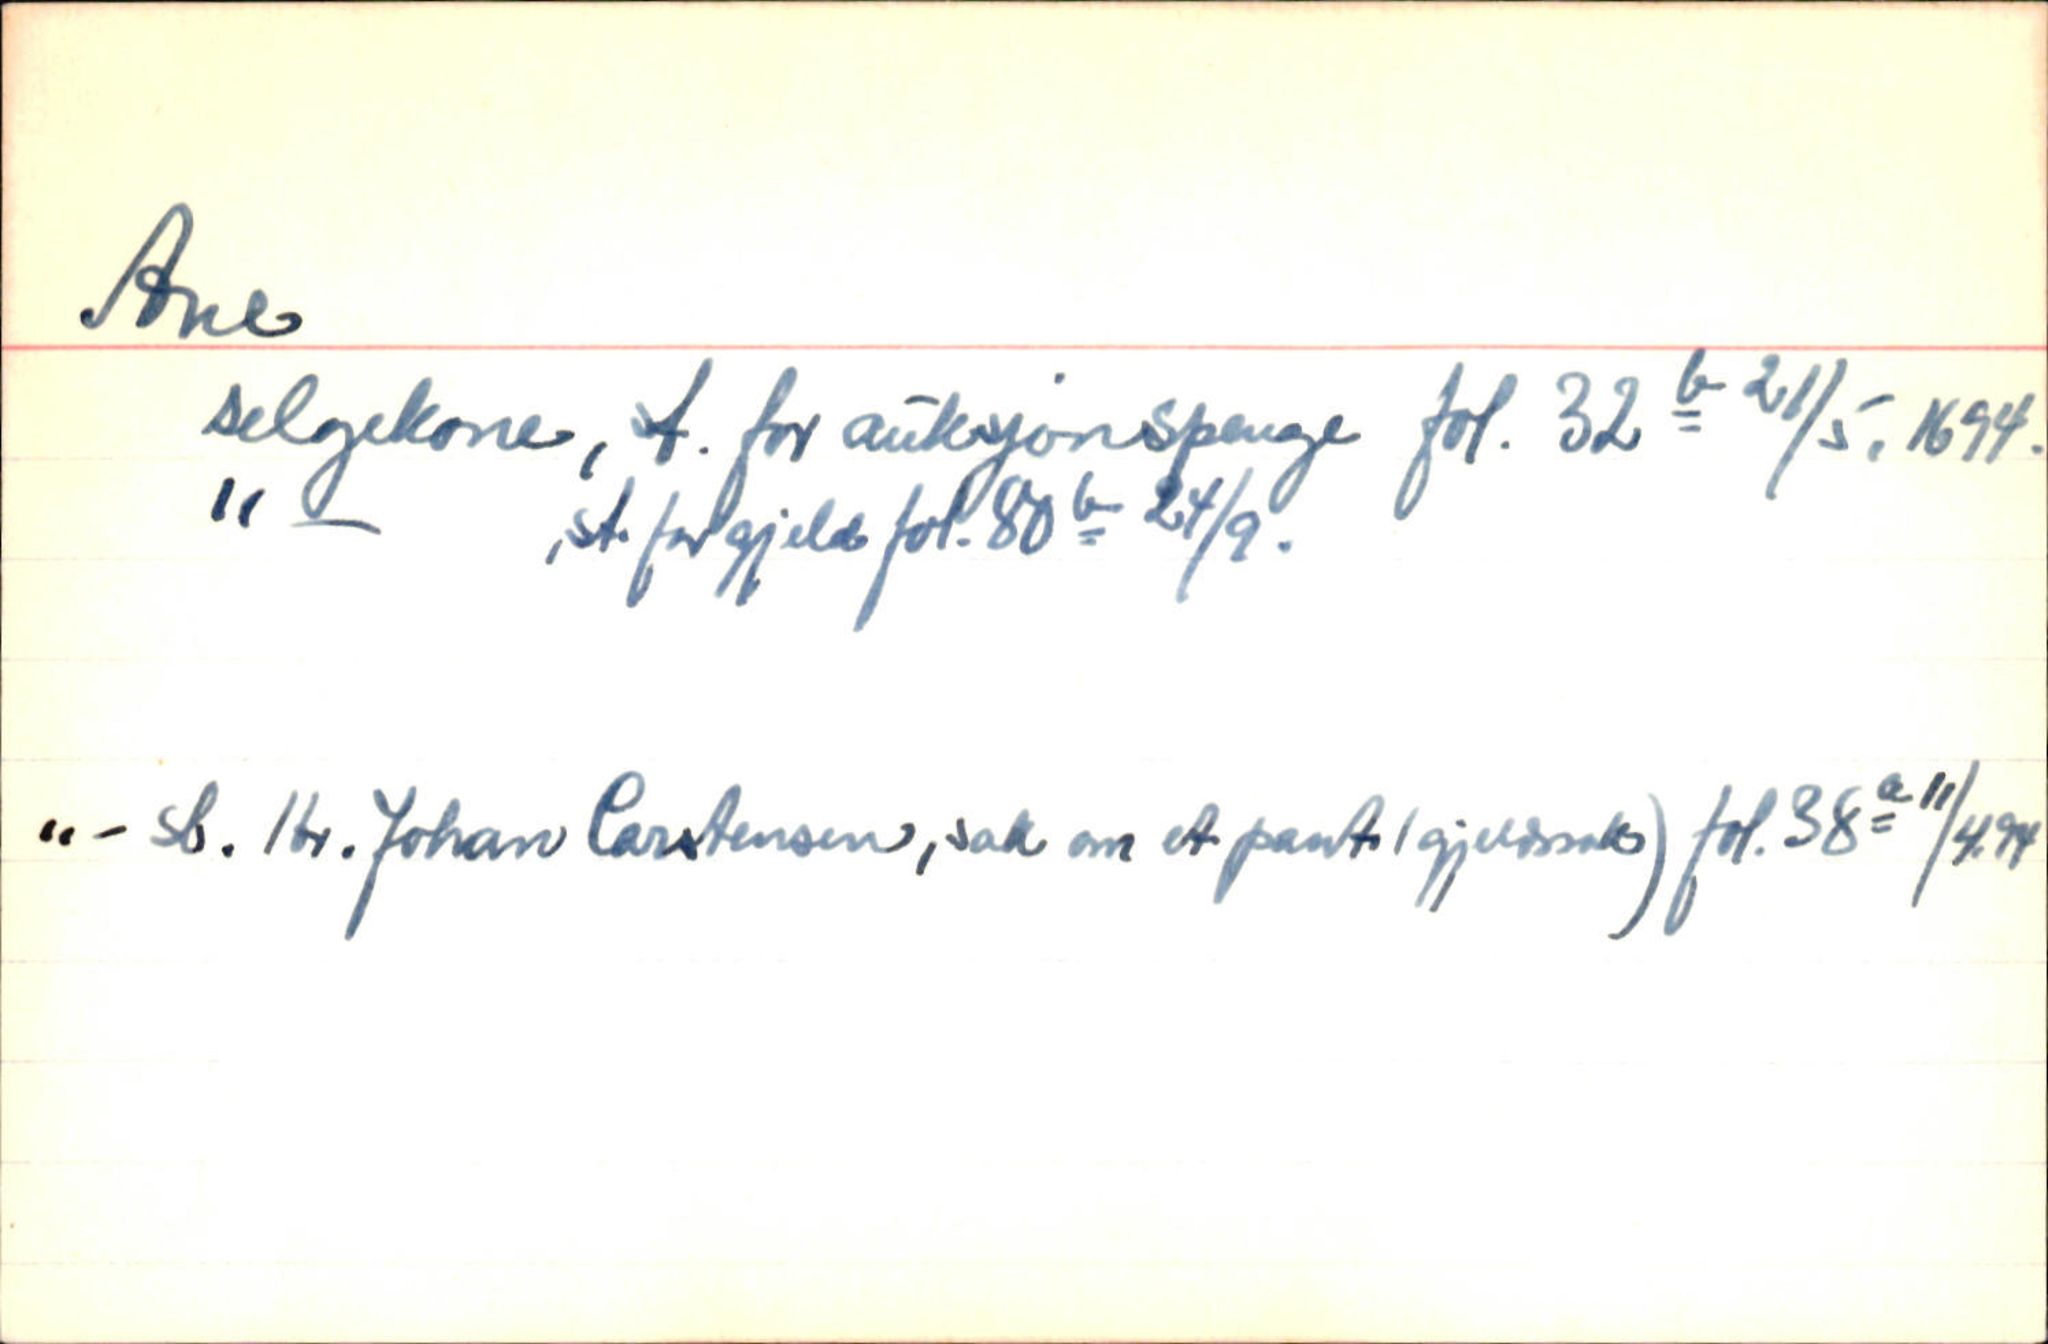 Ane
selgekone, st. for auksjonspenge fol. 32 b 21/5. 1694.
" — , st. for gjeld fol. 80 b 24/9.
" - sb. Hr. Johan Carstensen, sak om et pant (gjeldssak) fol. 38 a 11/4.94